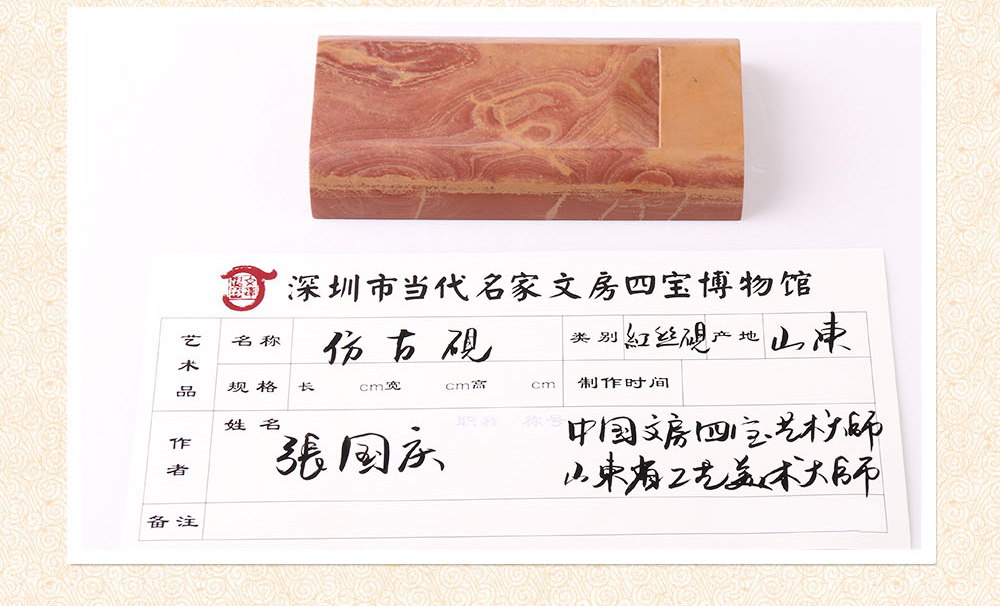 深圳市当代名家文房四宝博物馆
艺术品 名称 仿古硯 类别 紅丝硯 产地 山東
规格 长 cm宽 cm高 cm 制作时间
作者 姓名 張国庆 职称/称号 中国文房四宝艺术大师
山東省工艺美术大师
备注